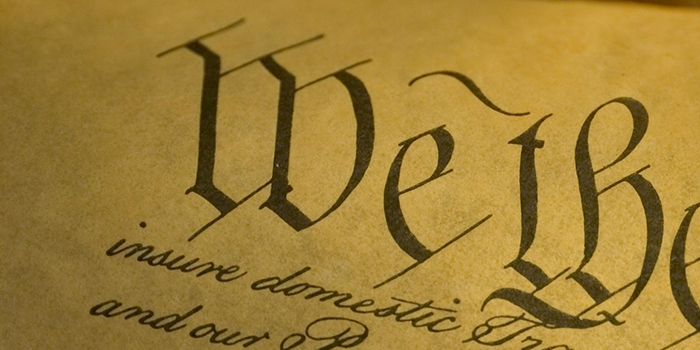 We the
insure domestic Tra
and our P